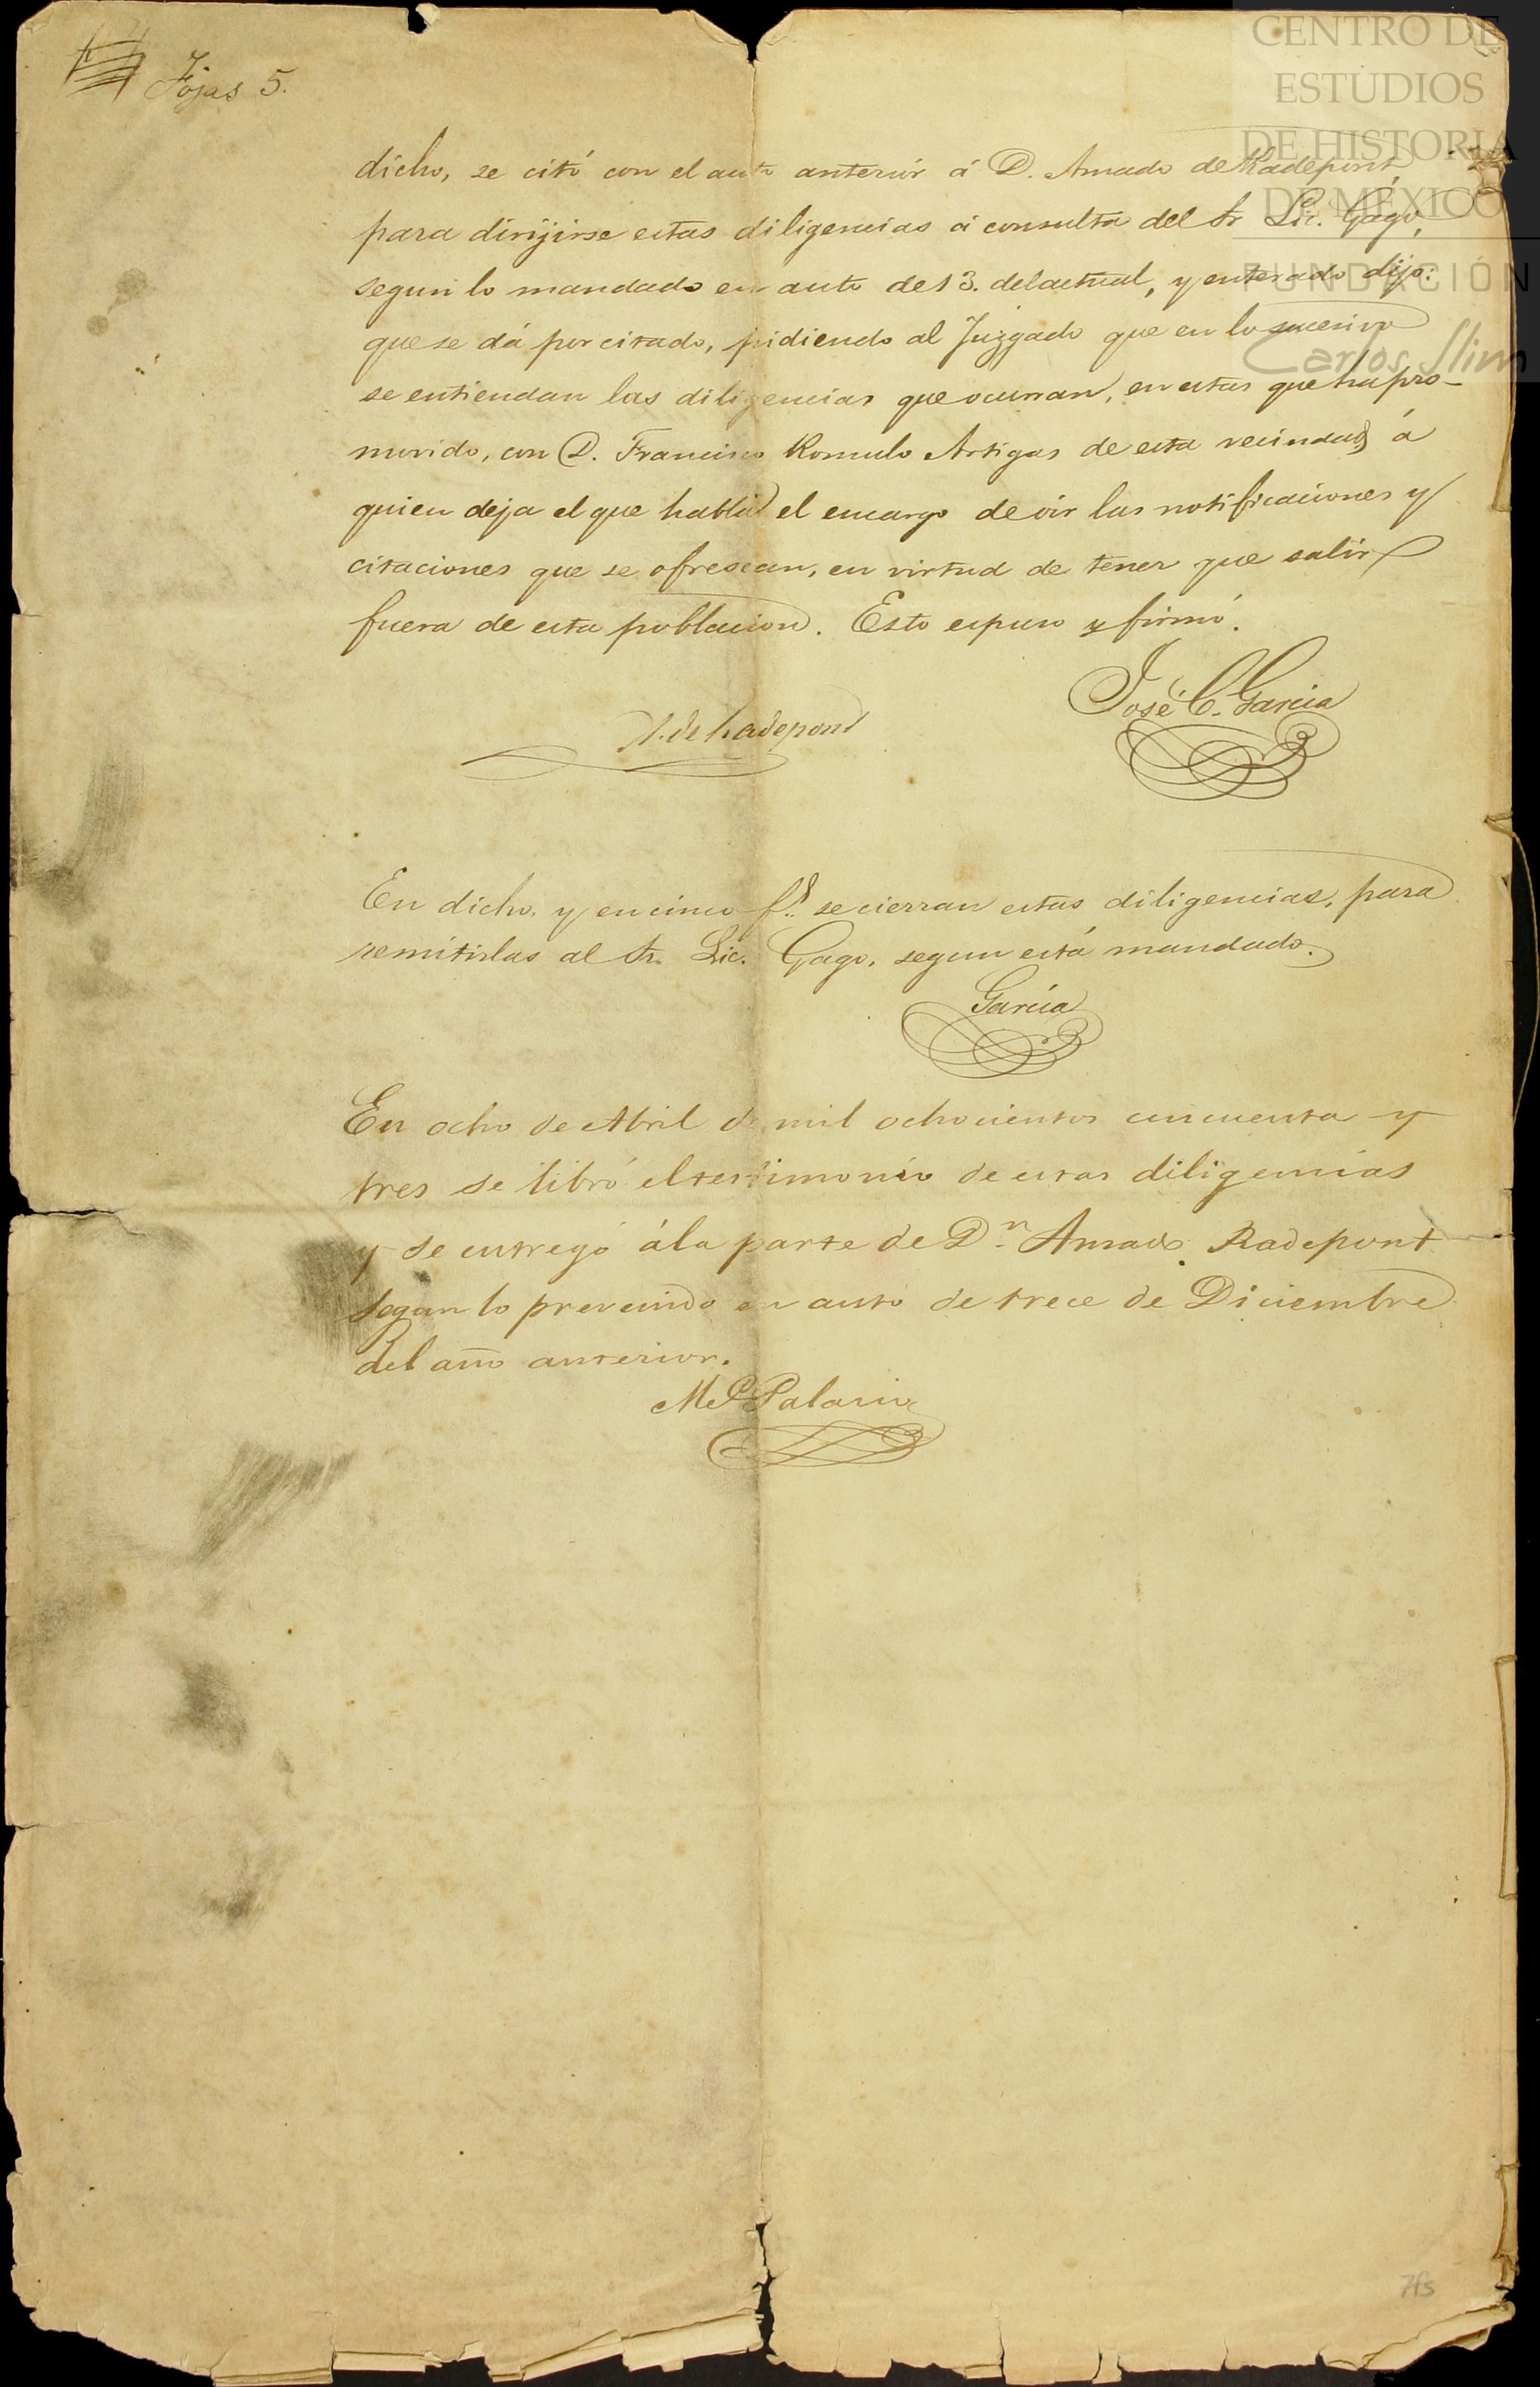 Fojas 5.
CENTRO DE
ESTUDIOS
DE HISTORIA
DE MÉXICO
FUNDACIÓN
Carlos Slim
dicho, se citó con el auto anteriór á D. Amado de Radepont,
para dirijirse estas diligencias á consulta del Sr Lic. Gágo,
segun lo mandado en auto de 13. del actual, y enterado dijo:
que se dá por citado, pidiendo al Juzgado que en lo sucesivo
se entiendan las diligencias que ocurran, en estas que ha pro-
movido, con D. Francisco Romulo Artigas de esta vecindad, á
quien deja el que habla el encargo de oir las notificaciones y
citaciones que se ofrescan, en virtud de tener que salir
fuera de esta poblacion. Esto espuso y firmó.
José C. Garcia
A. de Radepont
En dicho, y en cinco fs. se cierran estas diligencias, para
remitirlas al Sr. Lic. Gago, segun está mandado.
García
En ocho de Abril de mil ochocientos cincuenta y
tres se libró el testimonio de estas diligencias
y se entregó á la parte de Dn. Amado Radepont
segun lo prevenido en auto de trece de Diciembre
del año anterior.
Palacio
7fs